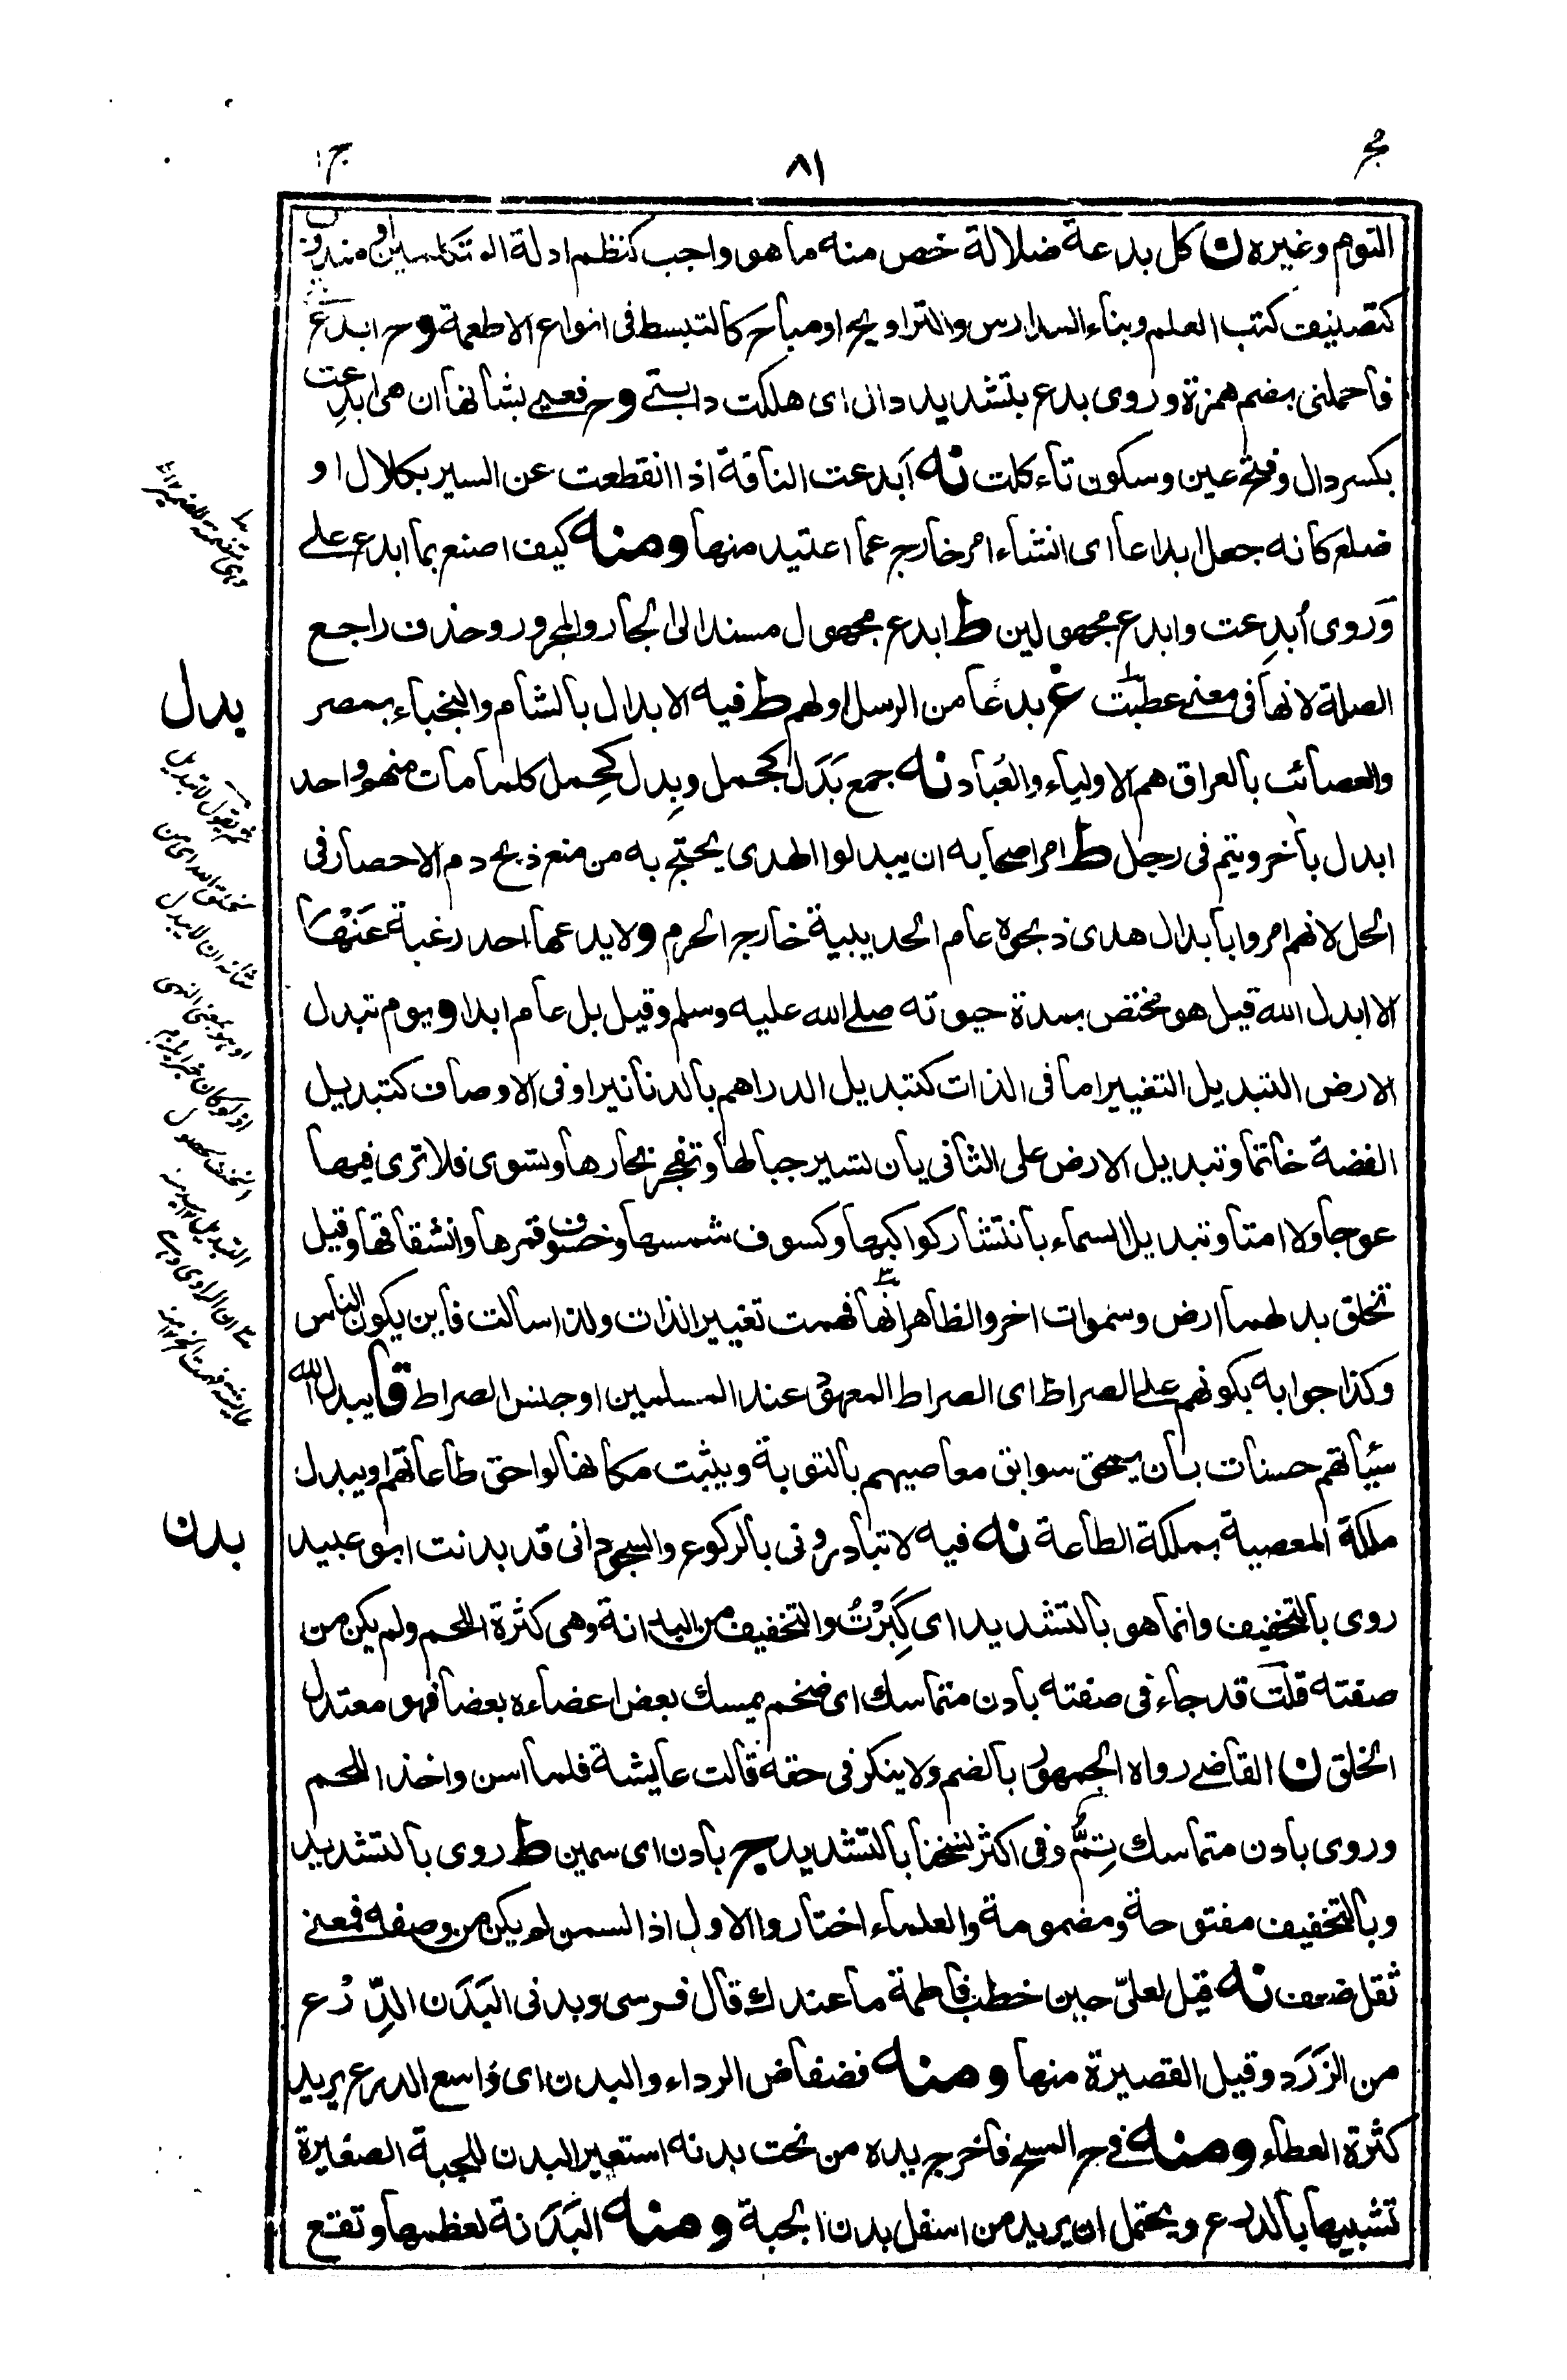 مج ٨١ ج١
التوم وغيره ن كل بدعة ضلالة خص منه ما هو واجب كنظم ادلة المتكلمين او مندوب
كتصنيف كتب العلم وبناء المدارس والتراويح او مباح كالتبسط فى انواع الاطعمة وح ابدع
فاحملنى بضم همزة وروى بدع بتشديد دال اى هلكت دابتے وح فعيے بشانها ان هى ابدعت
بكسر دال وفتح عين وسكون تاء كلت نه ابدعت الناقة اذا انقطعت عن السير بكلال او
ضلع كانه جعل ابداعا اى انشاء امر خارج عما اعتيد منها ومنه كيف اصنع بما ابدع علے
وروى أبدِعت وابدع مجهولين ط ابدع مجهول مسندا الى الجار والمجرور وحذف راجع
الصلة لانها فى معنے عطبت غ بدعا من الرسل اولهم ط فيه الابدال بالشام والنجباء بمصر
والعصائب بالعراق هم الاولياء والعُباد نه جمع بَدَل كجمل وبِدل كحِمل كلما مات منهم واحد
ابدل باخر ويتم فى رجل ط امر اصحابه ان يبدلوا الهدى يحتج به من منع ذبح دم الاحصار فى
الحل لانهم امروا بابدال هدى ذبحوه عام الحديبية خارج الحرم ولا يدعها احد رغبة عَنْهَا
الا ابدل الله قيل هو مختص بمدة حيوته صلے الله عليه وسلم وقيل بل عام ابدا ويوم تبدل
الارض التبديل التغيير اما فى الذات كتبديل الدراهم بالدنانير او فى الاوصاف كتبديل
الفضة خاتما وتبديل الارض على الثانى بان تسير جبالها وتفجر بحارها وتسوى فلا ترى فيها
عوجا ولا امتا وتبديل السماء بانتشار كواكبها وكسوف شمسها وخسوف قمرها وانشقاقها وقيل
تخلق بدلهما ارض وسموات اخر والظاهر انها فهمت تغيير الذات ولذا سالت فاين يكون الناس
وكذا جوابه بكونهم علے الصراط اى الصراط المعهود عند المسلمين او جنس الصراط قا يبدل الله
سيّاتهم حسنات بان يمحق سوابق معاصيهم بالتوبة ويثبت مكانها لواحق طاعاتهم او يبدل
ملكة المعصية بملكة الطاعة نه فيه لا تبادرونى بالركوع والسجود انى قد بدنت ابو عبيد
روى بالتخفيف وانما هو بالتشديد اى كَبِرْتُ والتخفيف من البدانة وهى كثرة اللحم ولم يكن من
صفته قلت قد جاء فى صفته بادن متماسك اى ضخم يمسك بعض اعضاءه بعضا فهو معتدل
الخلق ن القاضے رواه الجمهور بالضم ولا ينكر فى حقه قالت عايشة فلما اسن واخذ اللحم
وروى بادن متماسك تِتمُّ وفى اكثر نسخنا بالتشديد ج بادن اى سمين ط روى بالتشديد
وبالتخفيف مفتوحة ومضمومة والعلماء اختاروا الاول اذ السمن لم يكن من وصفه فمعنے
ثقل ضعف نه قيل لعلىّ حين خطب فاطمة ما عندك قال فرسى وبدنى البَدَن الدِّرْع
من الزَرَد وقيل القصيرة منها ومنه فضفاض الرداء والبدن اى واسع الدرع يريد
كثرة العطاء ومنه فے ح المسح فاخرج يده من تحت بدنه استعير البدن للجبة الصغيرة
تشبيها بالدرع ويحتمل ان يريد من اسفل بدن الجبة ومنه البَدَنة لعظمها وتقع
بدل
بدن